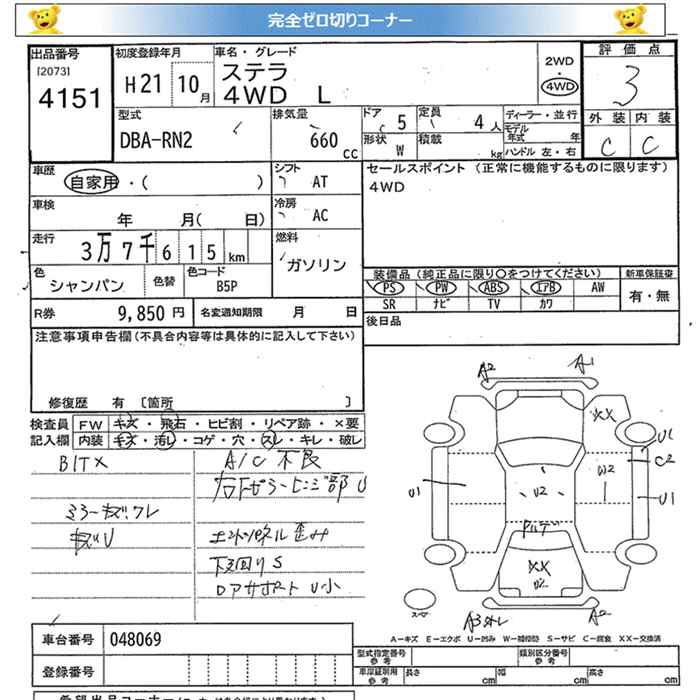 完全ゼロ切りコーナー
出品番号 初度登録年月 車名・グレード 評価点
[2073] 4151 H21 10月 ステラ 4WD L 2WD 4WD 3
型式 排気量 ドア 5 定員 4人 ディーラー・並行 外装 内装
DBA-RN2 660cc 形状 W 積載 kg モデル年式 年 C C
ハンドル 左・右
車歴 自家用・( ) シフト AT セールスポイント (正常に機能するものに限ります)
4WD
車検 年 月( 日) 冷房 AC
走行 3万7千615km 燃料 ガソリン
色 シャンパン 色替 色コード B5P 装備品(純正品に限り○をつけてください) 新車保証書
PS PW ABS エアB AW 有・無
SR ナビ TV カワ
R券 9,850円 名変通知期限 月 日 後日品
注意事項申告欄(不具合内容等は具体的に記入して下さい)
修復歴 有 〔箇所 〕
検査員 FW キズ・飛石・ヒビ割・リペア跡・×要
記入欄 内装 キズ・汚レ・コゲ・穴・スレ・キレ・破レ
A/C 不良
下回りS
ドアサポート U小
A2 A1
XX
U1
C2
U1 W2 U1
U2
XX
A2
スペア
A-キズ E-エクボ U-凹み W-補修跡 S-サビ C-腐食 XX-交換済
車台番号 048069 型式指定番号 参考 類別区分番号 参考
登録番号 車庫証明用 参考 長さ 幅 高さ
cm cm cm